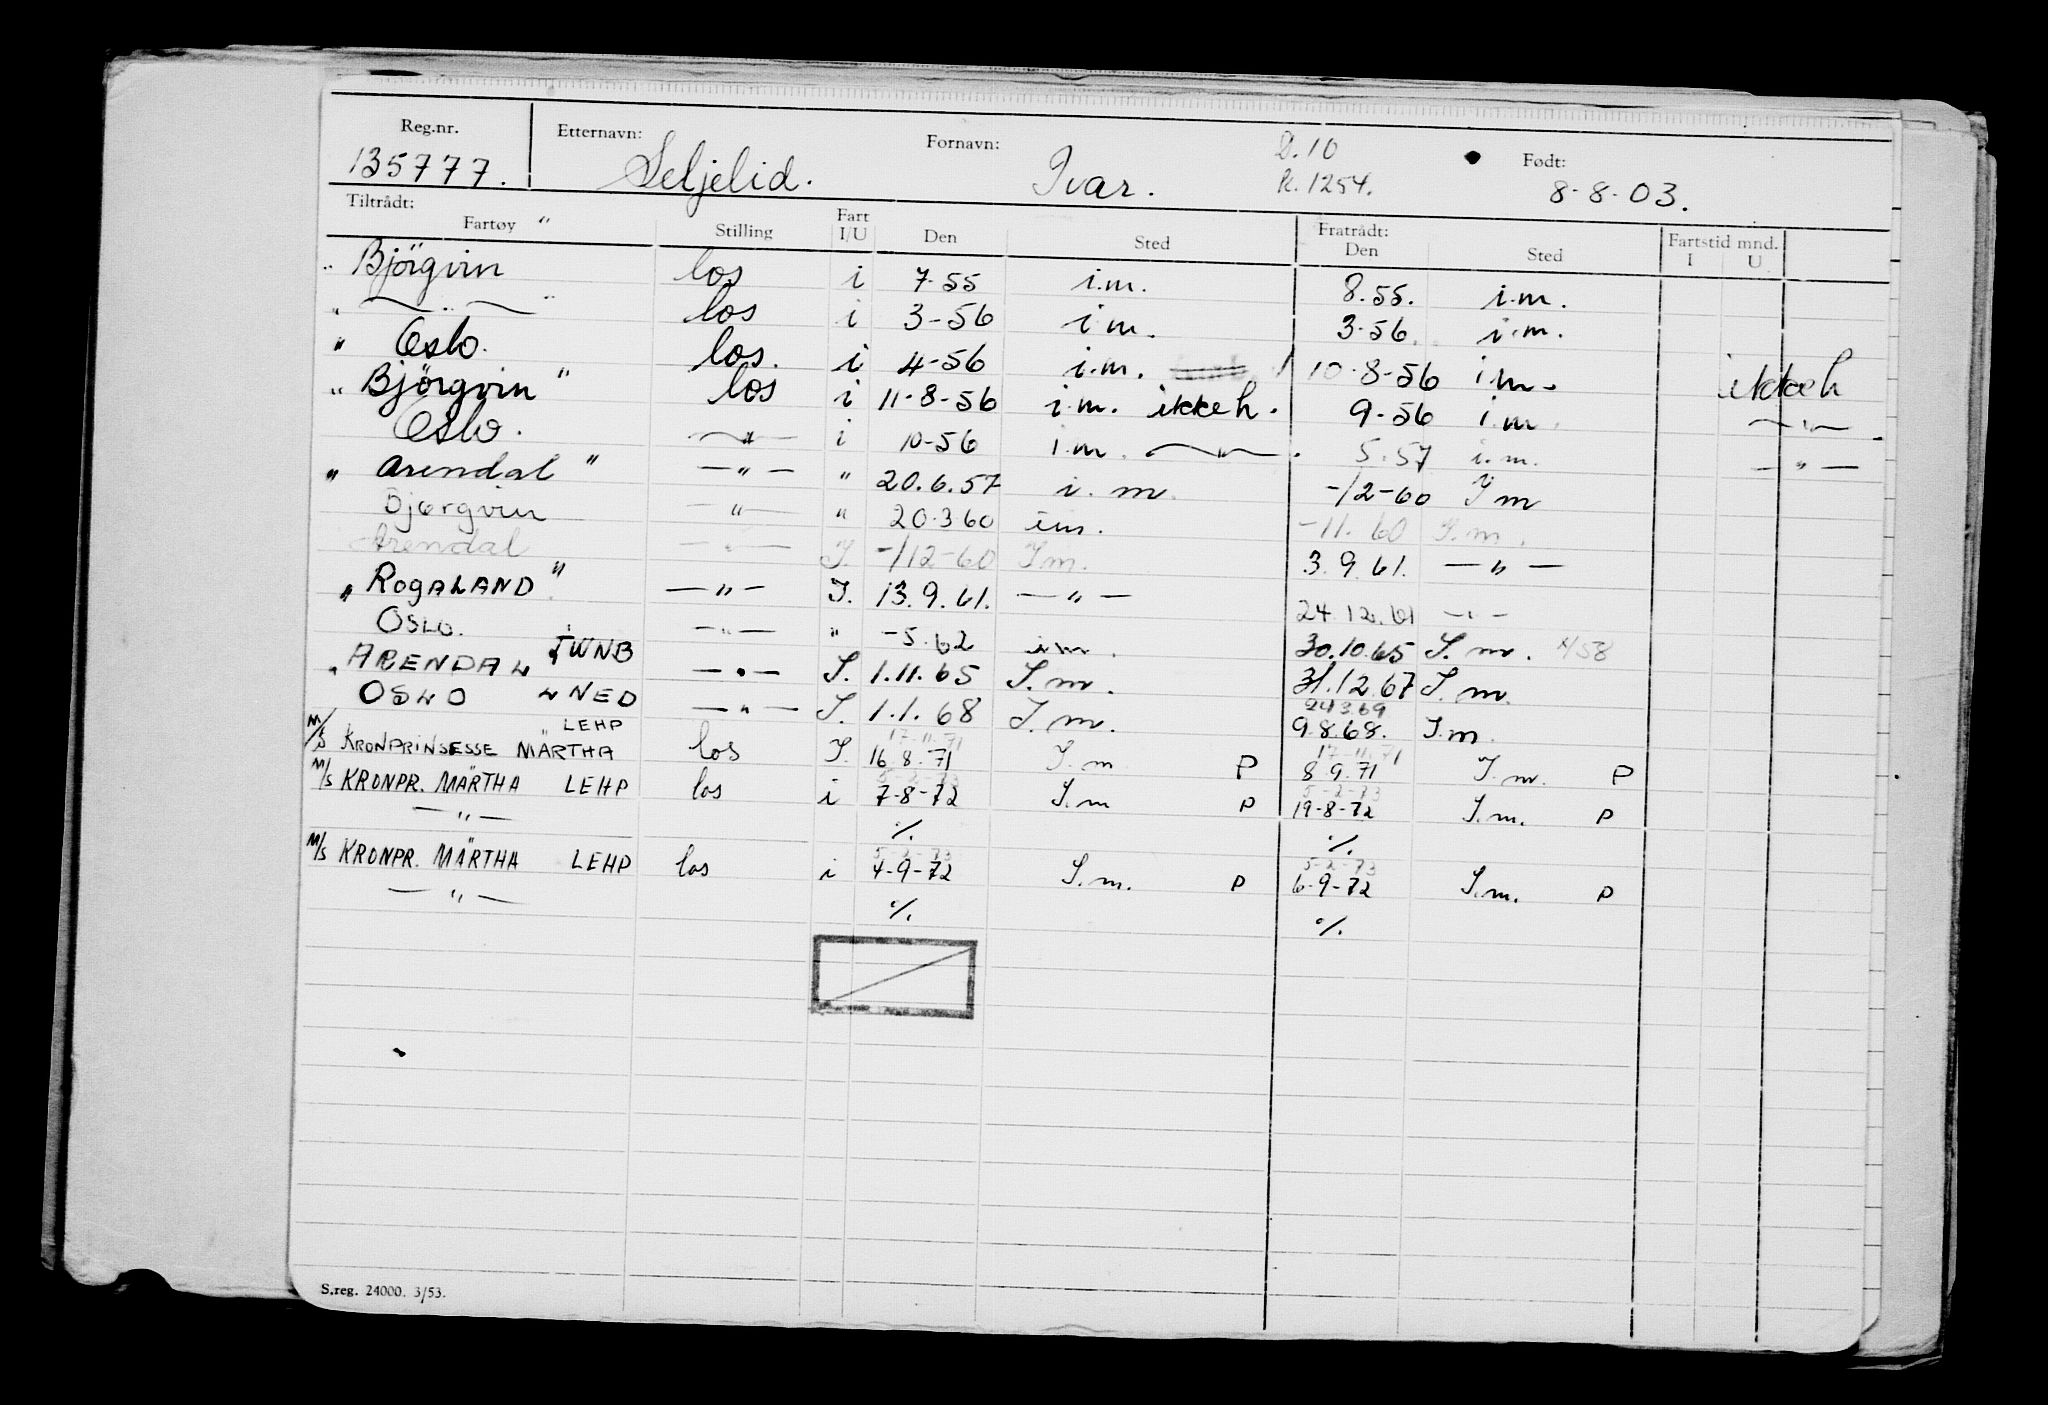 Reg.nr. Etternavn: Fornavn: D.10 Født:
135777. Seljelid. Ivar. R.1254. 8-8-03.
Tiltrådt: Fratrådt: Fartstid mnd.
Fartøy " Stilling Fart I/U Den Sted Den Sted I U
" Bjørgvin los i 7-55 i.m. 8.55. i.m.
" —"— " los i 3-56 i.m. 3-56. i.m.
" Oslo. los. i 4-56 i.m. 10-8-56 i.m. ikke h
" Bjørgvin " los i 11-8-56 i.m. ikke h. 9-56 i.m. —"—
Oslo. —"— i 10-56 i.m. —"— 5.57 i.m. —"—
" Arendal " —"— " 20.6.57 i.m. -/2-60 I m
Bjørgvin —"— " 20.3.60 im. -11.60 I.m.
Arendal —"— I. -/12-60 Im. 3.9.61. —"—
" ROGALAND " —"— I. 13.9.61. —"— 24.12.61 —"—
OSLO. —"— " -5.62 im. 30.10.65 I.m. 4/58
" ARENDAL JWNB —"— I. 1.11.65 I.m. 31.12.67 I.m.
OSLO LNED —"— I. 1.1.68 I.m. 24.3.69 9.8.68. I.m.
M/S KRONPRINSESSE MÄRTHA LEHP los I. 17-11-71 16.8.71 I.m P 17-11-71 8.9.71 I.m. P
M/S KRONPR. MÄRTHA LEHP los i 5-2-73 7-8-72 I.m P 5-2-73 19-8-72 I.m. P
—"— %. %.
M/S KRONPR. MÄRTHA LEHP los i 5-2-73 4-9-72 I.m. P 5-2-73 6-9-72 I.m. P
—"— %. %.
S.reg. 24000. 3/53.